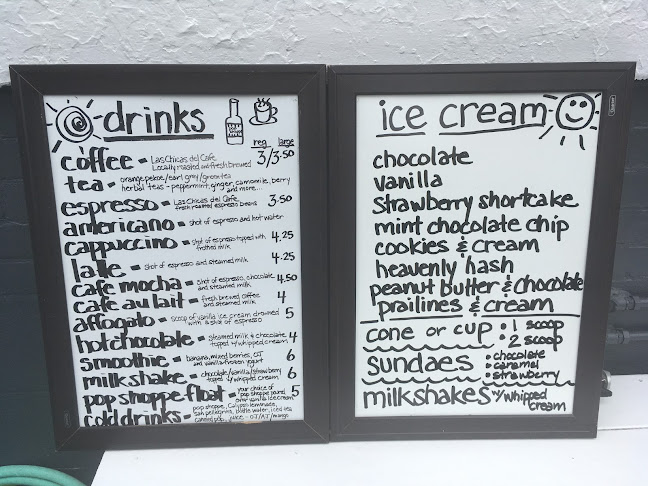 drinks
reg large
coffee = Las Chicas del Cafe 3/3.50
Locally roasted and fresh brewed
tea = orange pekoe/earl grey/green tea
herbal teas - peppermint, ginger, camomile, berry
and more...
espresso = Las Chicas del Cafe 3.50
fresh roasted espresso beans
americano = shot of espresso and hot water
cappuccino = shot of espresso topped with 4.25
frothed milk
latte = shot of espresso and steamed milk 4.25
cafe mocha = shot of espresso, chocolate 4.50
and steamed milk
cafe au lait = fresh brewed coffee 4
and steamed milk
affogato = scoop of vanilla ice cream drowned 5
with a shot of espresso
hot chocolate = steamed milk & chocolate 4
topped w/whipped cream
smoothie = banana, mixed berries, OJ 6
and vanilla frozen yogurt
milkshake = chocolate/vanilla/strawberry 6
topped w/whipped cream
pop shoppe float = your choice of 5
pop shoppe poured
over vanilla ice cream
cold drinks = pop shoppe, calypso lemonade,
san pellegrino, bottle water, iced tea
canned pop, juice - OJ/AJ/mango
ice cream
chocolate
vanilla
strawberry shortcake
mint chocolate chip
cookies & cream
heavenly hash
peanut butter & chocolate
prailines & cream
cone or cup • 1 scoop
• 2 scoop
sundaes • chocolate
• caramel
• strawberry
milkshakes w/whipped
cream